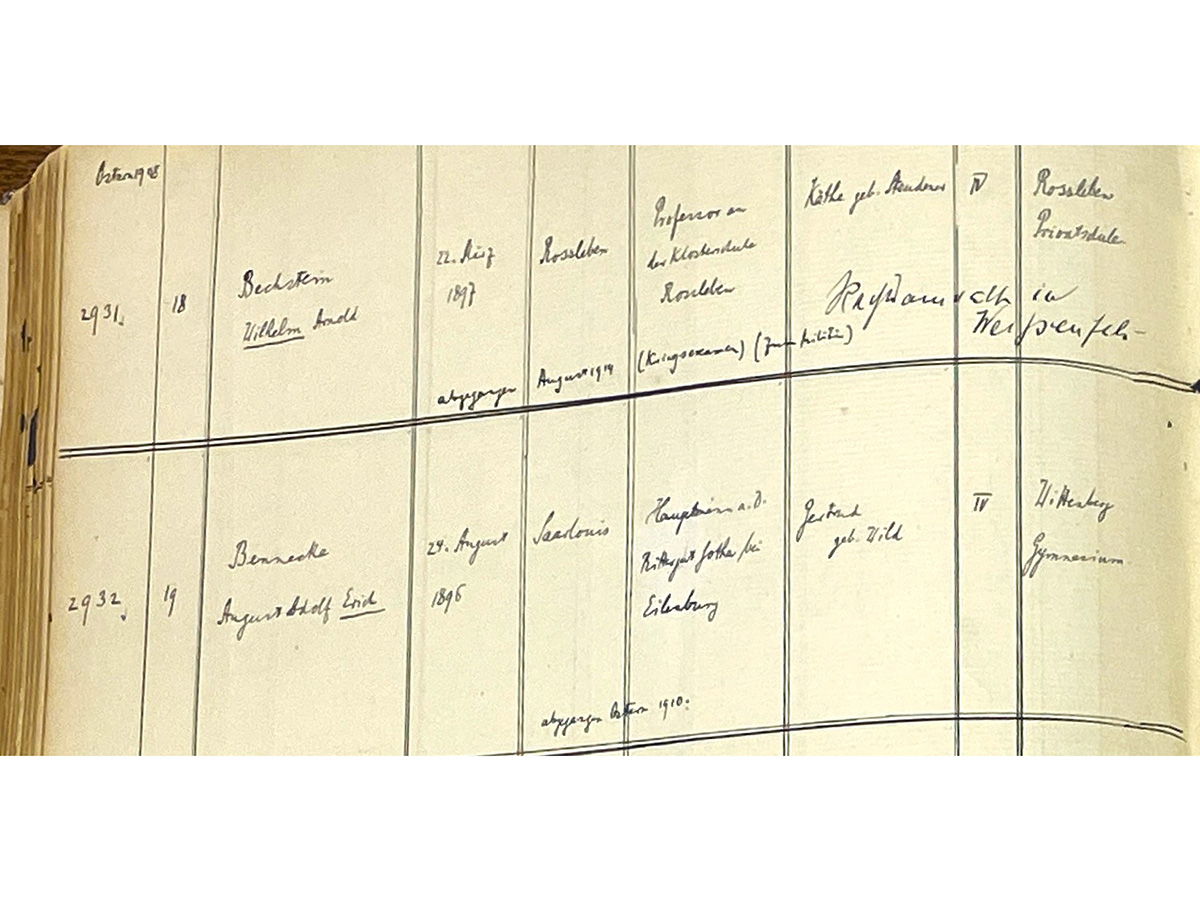 Ostern 1908
2931. 18 Bechstein
Wilhelm Arnold
22. März
1897
Rossleben
Professor an
der Klosterschule
Rossleben
Käthe geb. Steudener
IV
Rossleben
Privatschule
Rechtsanwalt in
Weißenfels
abgegangen August 1914 (Kriegsexamen) (zum Militär)
2932. 19 Bennecke
August Adolf Erich
24. August
1896
Saarlouis
Hauptmann a. D.
Rittergut Gotha bei
Eilenburg
Gertrud
geb. Wild
IV
Wittenberg
Gymnasium
abgegangen Ostern 1910.